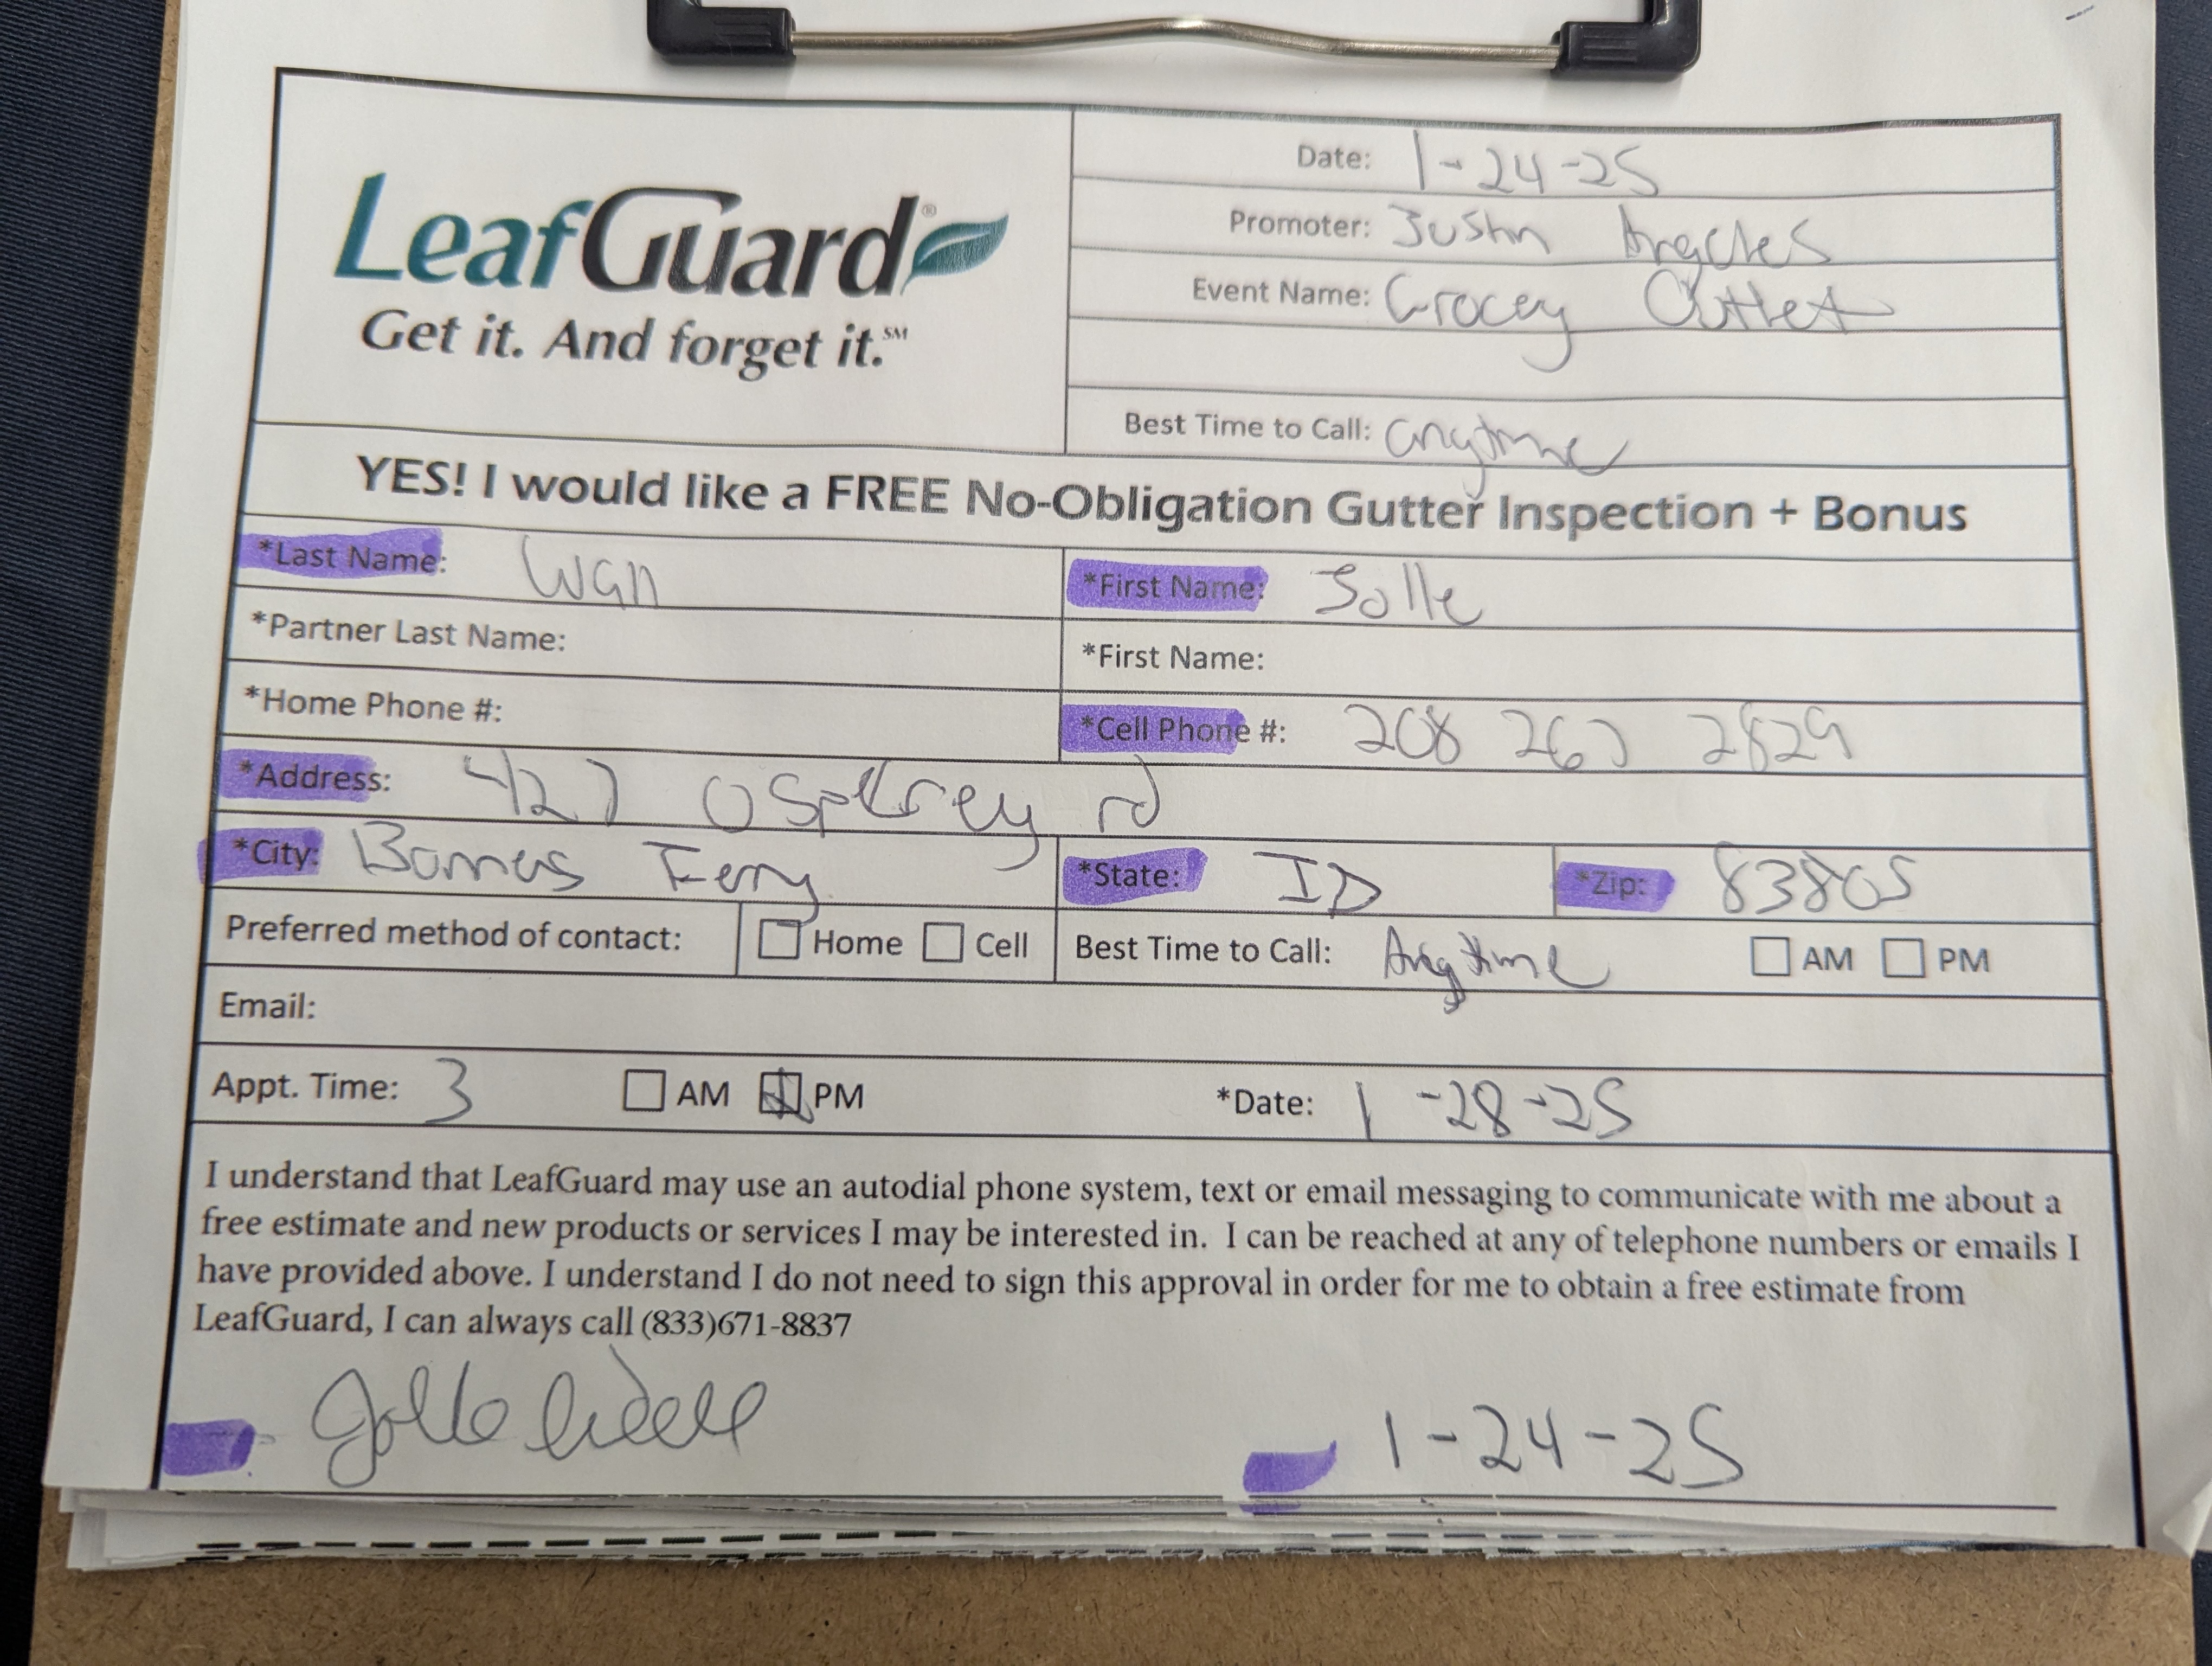 Date: 1-24-25
Promoter: Justin Angeles
LeafGuard®
Get it. And forget it.℠
Event Name: Grocey Outlet
Best Time to Call: anytime
YES! I would like a FREE No-Obligation Gutter Inspection + Bonus
*Last Name: *First Name:
*Partner Last Name: *First Name:
*Home Phone #: *Cell Phone #: 208 267 2829
*Address: 427 rd
*City: Ferry *State: ID *Zip: 83805
Preferred method of contact: Home Cell Best Time to Call: Anytime AM PM
Email:
Appt. Time: 3 AM PM *Date: 1-28-25
I understand that LeafGuard may use an autodial phone system, text or email messaging to communicate with me about a
free estimate and new products or services I may be interested in. I can be reached at any of telephone numbers or emails I
have provided above. I understand I do not need to sign this approval in order for me to obtain a free estimate from
LeafGuard, I can always call (833)671-8837
1-24-25